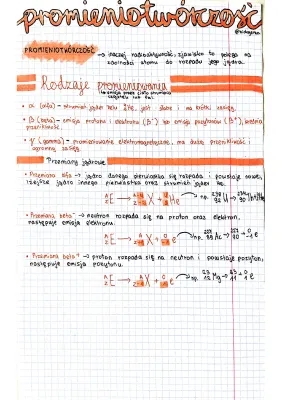 promieniotwórczość
PROMIENIOTWÓRCZOŚĆ → inaczej radioaktywność; zjawisko to polega na
zdolności atomu do rozpadu jego jądra.
Rodzaje promieniowania
to emisja przez ciało strumienia
cząstek lub fal.
• α (alfa) - strumień jąder helu ⁴₂He, jest słabe i ma krótki zasięg.
• β (beta) - emisja protonu i elektronu (β⁻) lub emisja pozytonów (β⁺), średnia
przenikliwość.
• γ (gamma) - promieniowanie elektromagnetyczne, ma dużą przenikliwość i
ogromny zasięg.
Przemiany jądrowe
• Przemiana alfa → jądro danego pierwiastka się rozpada i powstaje nowe,
lżejsze jądro innego pierwiastka oraz strumień jąder He.
E → X + He np. U → Th + He
• Przemiana beta⁻ → neutron rozpada się na proton oraz elektron,
następuje emisja elektronu.
E → X + e np. Ac → + e
• Przemiana beta⁺ → proton rozpada się na neutron i powstaje pozyton,
następuje emisja pozytonu.
E → X + e np. Mg → + e